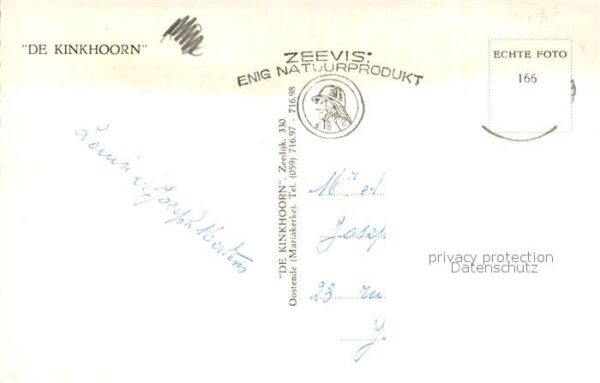 "DE KINKHOORN"
ZEEVIS:
ENIG NATUURPRODUKT
ECHTE FOTO
166
"DE KINKHOORN". Zeedijk, 330
Oostende (Mariakerke). Tel. (059) 716.97 - 716.98
Joseph Mertens
Mr et
Josep
23 ru
J.
privacy protection
Datenschutz